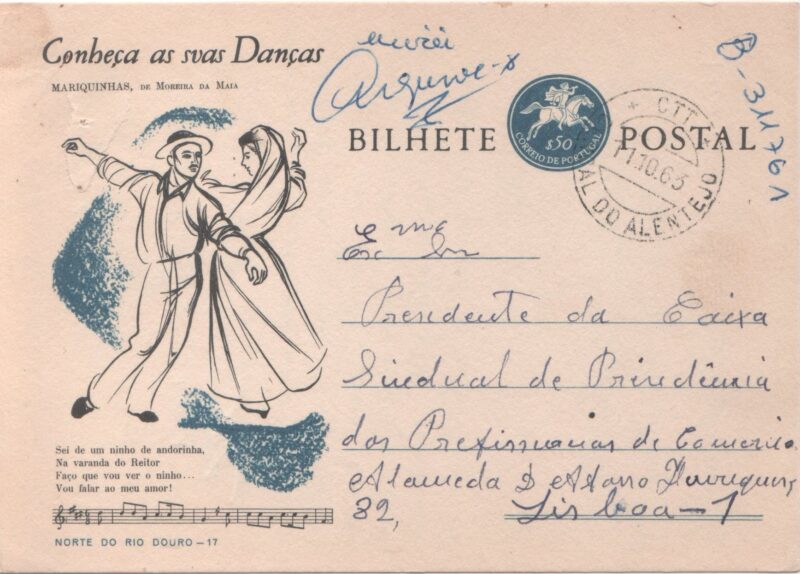 Conheça as suas Danças
MARIQUINHAS, DE MOREIRA DA MAIA
BILHETE POSTAL
$50
CORREIO DE PORTUGAL
CTT
11.10.63
AL DO ALENTEJO
B-311761
Arquive-se
Exmo Sr
Presidente da Caixa
Sindical de Previdência
dos Profissionais de Comércio
Alameda D Afonso Henriques,
82, Lisboa-1
Sei de um ninho de andorinha,
Na varanda do Reitor
Faço que vou ver o ninho...
Vou falar ao meu amor!
NORTE DO RIO DOURO - 17